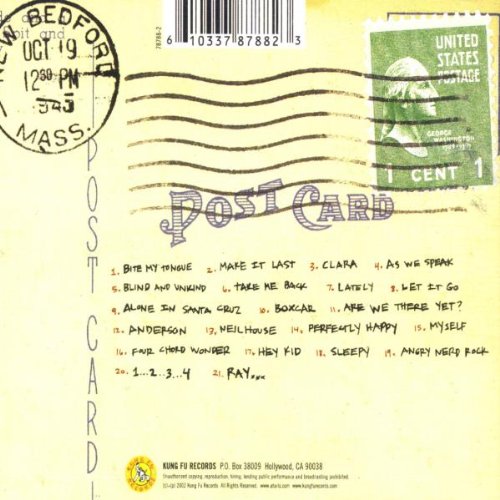 6 10337 87882 3
78788-2
NEW BEDFORD
OCT 19
12 30 PM
MASS.
UNITED
STATES
POSTAGE
GEORGE
WASHINGTON
1 CENT 1
POST CARD
POST CARD
1. BITE MY TONGUE 2. MAKE IT LAST 3. CLARA 4. AS WE SPEAK
5. BLIND AND UNKIND 6. TAKE ME BACK 7. LATELY 8. LET IT GO
9. ALONE IN SANTA CRUZ 10. BOXCAR 11. ARE WE THERE YET?
12. ANDERSON 13. NEILHOUSE 14. PERFECTLY HAPPY 15. MYSELF
16. FOUR CHORD WONDER 17. HEY KID 18. SLEEPY 19. ANGRY NERD ROCK
20. 1...2...3...4 21. RAY...
KUNG FU RECORDS P.O. Box 38009 Hollywood, CA 90038
Unauthorized copying, reproduction, hiring, lending public performance and broadcasting prohibited.
(c)+(p) 2002 Kung Fu Records. All Rights Reserved. www.kungfurecords.com